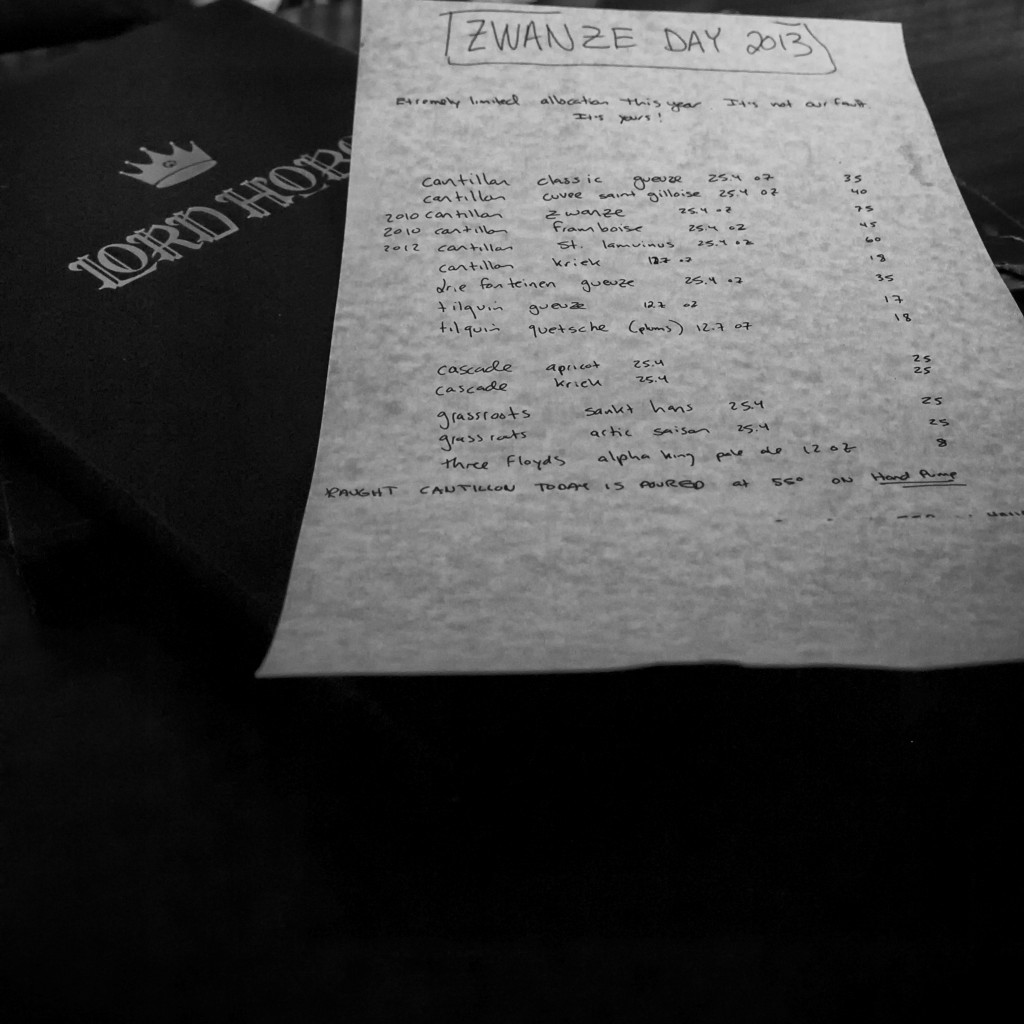 ZWANZE DAY 2013
Extremely limited allocation this year It's not our fault
It's yours!
cantillon classic gueuze 25.4 oz 35
cantillon cuvee saint gilloise 25.4 oz 40
2010 cantillon zwanze 25.4 oz 75
2010 cantillon framboise 25.4 oz 45
2012 cantillon St. lamvinus 25.4 oz 60
cantillon kriek 12.7 oz 18
drie fonteinen gueuze 25.4 oz 35
tilquin gueuze 12.7 oz 17
tilquin quetsche (plums) 12.7 oz 18
cascade apricot 25.4 25
cascade kriek 25.4 25
grassroots sankt hans 25.4 25
grassroots artic saison 25.4 25
three floyds alpha king pale ale 12 oz 8
RAUGHT CANTILLON TODAY IS POURED at 55° ON Hand Pump
LORD HOB